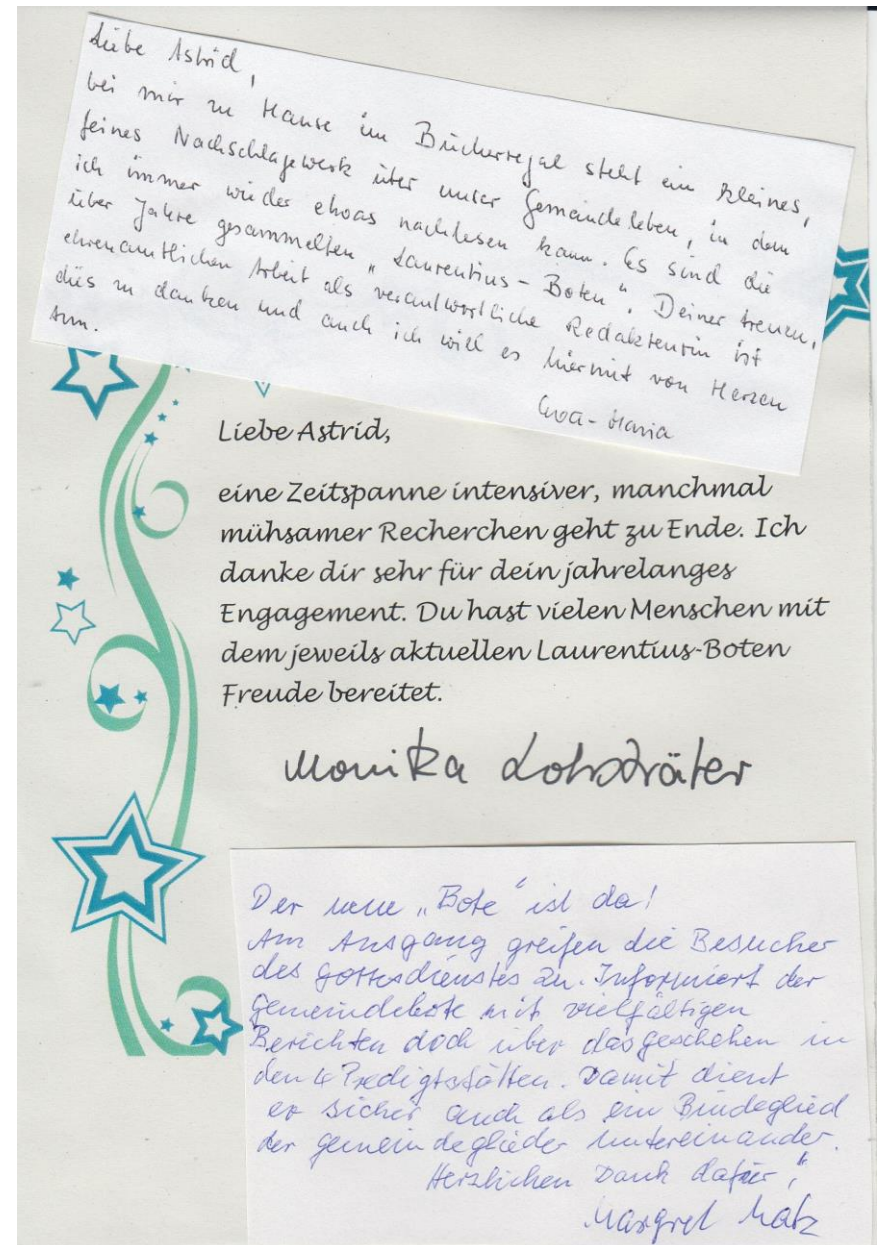 Liebe Astrid,
bei mir zu Hause im Bücherregal steht ein kleines,
feines Nachschlagewerk über unser Gemeindeleben, in dem
ich immer wieder etwas nachlesen kann. Es sind die
über Jahre gesammelten „Laurentius-Boten". Deiner treuen,
ehrenamtlichen Arbeit als verantwortliche Redakteurin ist
dies zu danken und auch ich will es hiermit von Herzen
tun.
Eva-Maria
Liebe Astrid,
eine Zeitspanne intensiver, manchmal
mühsamer Recherchen geht zu Ende. Ich
danke dir sehr für dein jahrelanges
Engagement. Du hast vielen Menschen mit
dem jeweils aktuellen Laurentius-Boten
Freude bereitet.
Monika Lohsträter
Der neue „Bote" ist da!
Am Ausgang greifen die Besucher
des Gottesdienstes zu. Informiert der
Gemeindebote mit vielfältigen
Berichten doch über das Geschehen in
den 4 Predigtstätten. Damit dient
er sicher auch als ein Bindeglied
der Gemeindeglieder untereinander.
Herzlichen Dank dafür,"
Margret Matz